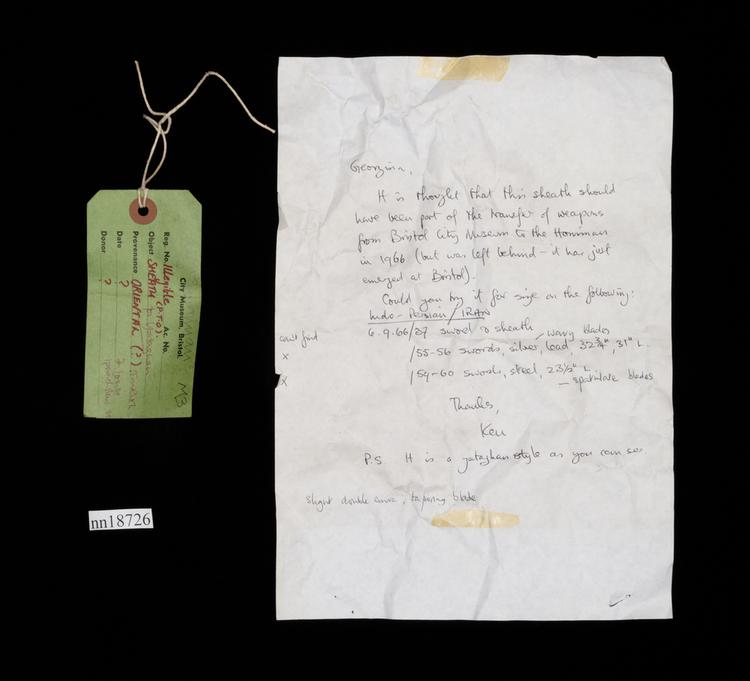 City Museum, Bristol.
M3
Reg. No. Illegible Ac. No.
(P.T.O).
Object SHEATH
Provenance ORIENTAL (?)
Date ?
Donor ?
nn18726
Georgina,
It is thought that this sheath should
have been part of the transfer of weapons
from Bristol City Museum to the Horniman
in 1966 (but was left behind - it has just
emerged at Bristol).
Could you try it for size on the following:
Indo-Persian / IRAN
6.9.66/27 sword & sheath - wavy blades
can't find
/55-56 swords, silver, load, 32¾", 31" L.
x
/59-60 swords, steel, 23½" L
x
- spatulate blades
Thanks,
Ken
P.S. It is a yataghan style as you can see
slight double curve, tapering blade